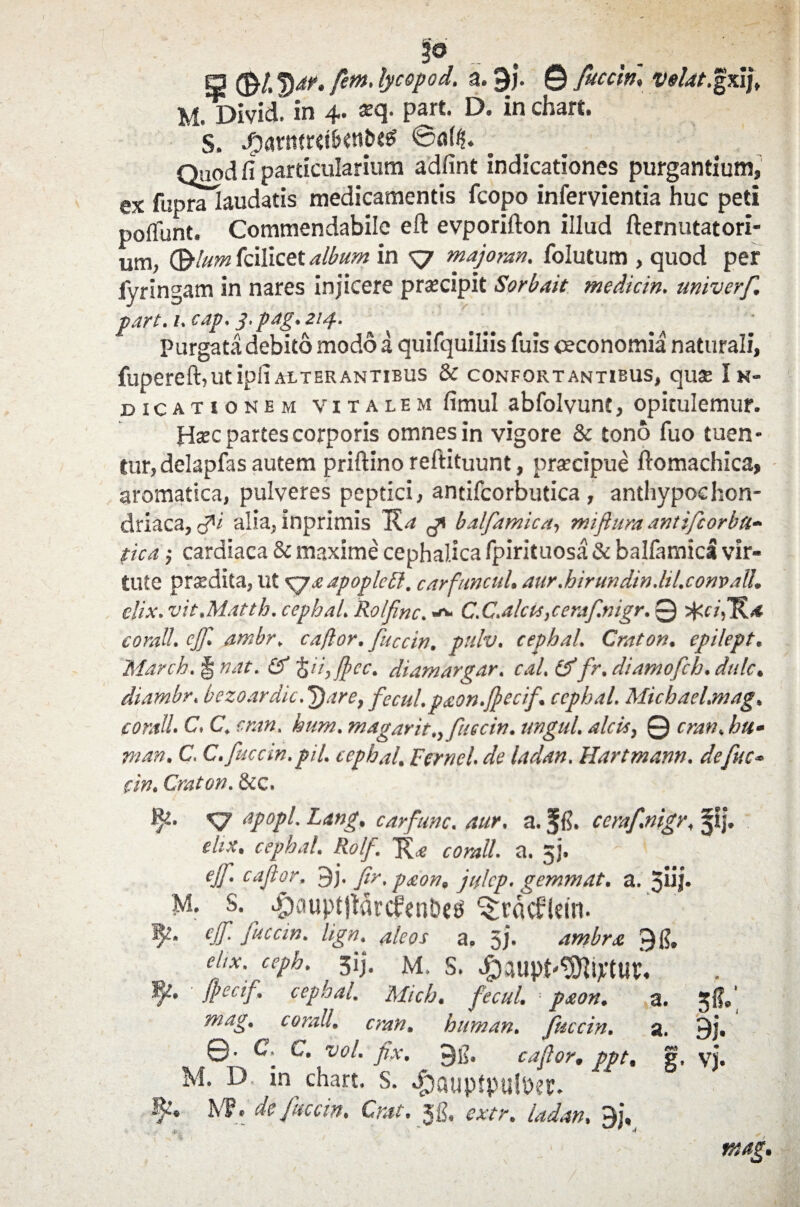 30
🜿 ⦶l.♄ar. sem. lycopod. a. ℈j. 🜔 succin. velat.gxij,
M. Divid. in 4. æq. part. D. in chart.
S. Harntreibendes Saltz.
Quod si particularium adsint indicationes purgantium,
ex supra laudatis medicamentis scopo inservientia huc peti
possunt. Commendabile est evporiston illud sternutatori-
um, ⦶lum scilicet album in 🜄 majoran. solutum, quod per
syringam in nares injicere præcipit Sorbait medicin. univers.
part. 1. cap. 3. pag. 214.
Purgatâ debitô modô à quisquiliis suis œconomiâ naturali,
superest, ut ipsi ALTERANTIBUS & CONFORTANTIBUS, quæ IN-
DICATIONEM VITALEM simul absolvunt, opitulemur.
Hæc partes corporis omnes in vigore & tonô suo tuen-
tur, delapsas autem pristino restituunt, præcipuè stomachica,
aromatica, pulveres peptici, antiscorbutica, anthypochon-
driaca, ♂i alia, inprimis ℞a ♂ balsamica, mistura antiscorbu-
tica; cardiaca & maximè cephalica spirituosâ & balsamicâ vir-
tute prædita, ut 🜄æ apoplect. carfuncul. aur. hirundin. lil. convall.
elix. vit. Matth. cephal. Rolfinc. ♎ C.C. alcis, ceras. nigr. 🜔 ✶ci, ℞a
corall. ess. ambr. castor. succin. pulv. cephal. Craton. epilept.
March. ℥ nat. & ♄ii, spec. diamargar. cal. & fr. diamosch. dulc.
diambr. bezoardic. ♄are, fecul. pæon. specif. cephal. Michael. mag.
corall. C. C. cran. hum. magarit., succin. ungul. alcis, 🜔 cran. hu-
man. C. C. succin. pil. cephal. Fernel. de ladan. Hartmann. de suc-
cin. Craton. &c.
℞. 🜄 apopl. Lang. carfunc. aur. a. ℥ß. ceras. nigr. ℥ij.
elix. cephal. Rolf. ℞æ corall. a. ʒj.
ess. castor. ℈j. sir. pæon. julep. gemmat. a. ʒiij.
M. S. Hauptstärckendes Träcklein.
℞. ess. succin. lign. aleos a. ʒj. ambræ ℈ß.
elix. ceph. ʒij. M. S. Haupt-Mixtur.
℞. specif. cephal. Mich. fecul. pæon. a. ʒß.
mag. corall. cran. human. succin. a. ℈j.
🜔. C. C. vol. fix. ℈ß. castor. ppt. g. vj.
M. D. in chart. S. Hauptpulver.
℞. MP. de succin. Crat. ʒß. extr. ladan. ℈j.
mag.